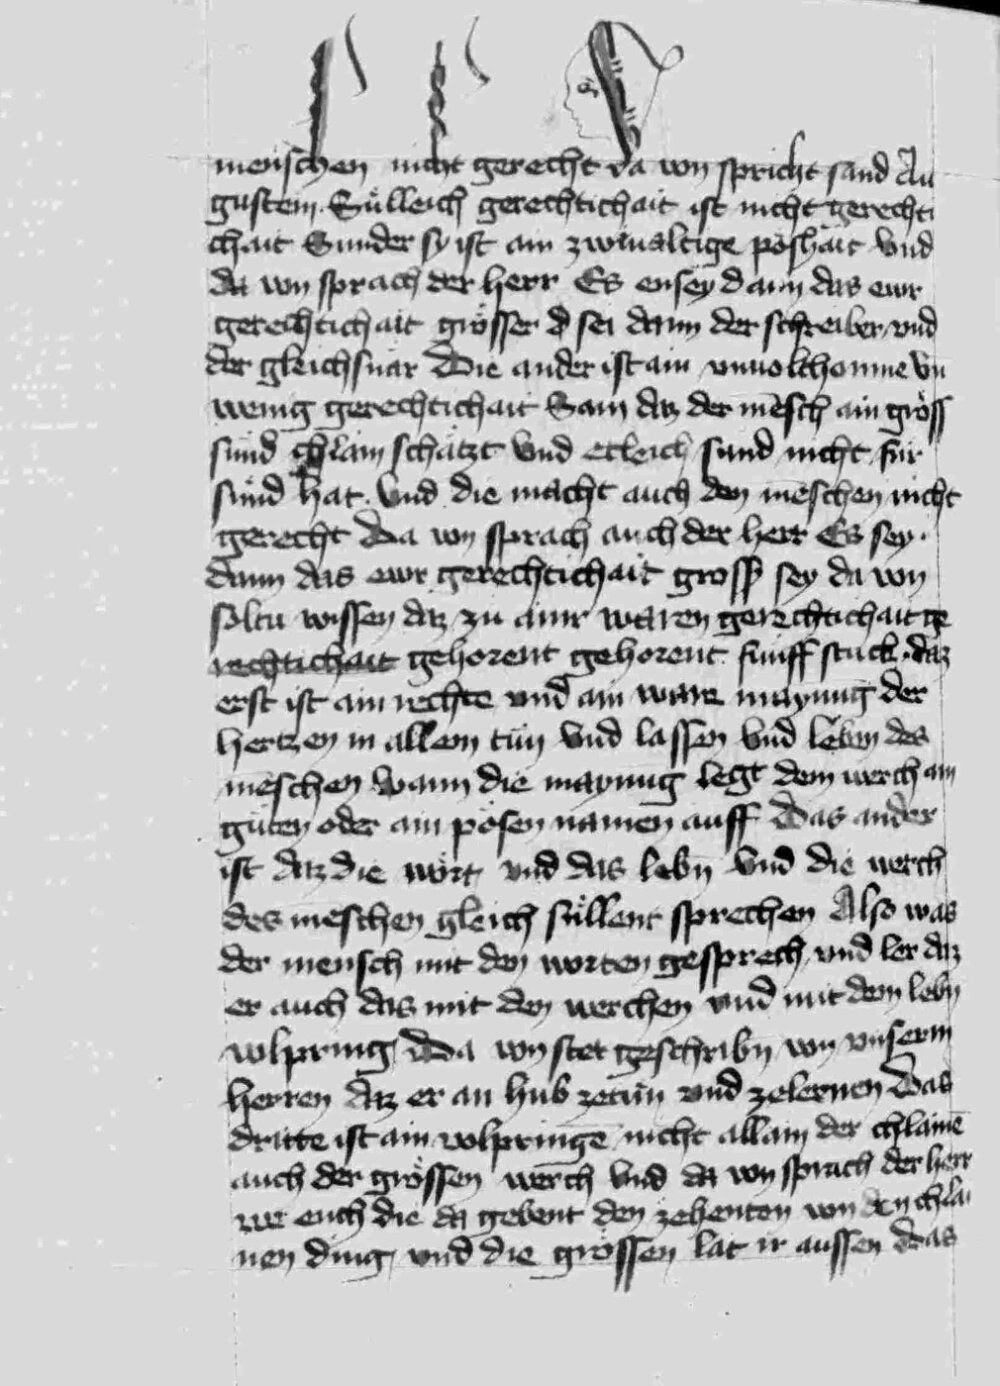 menschen nicht gerecht da von spricht sand Au
gustein. Sülleich gerechtichait ist nicht gerechti
chait Sunder sy ist ain zwiualtige poshait Vnd
da von sprach der herr Es ensey dann das ewr
gerechtichait grösser d sei dann der schreiber vnd
der gleichsnär Die ander ist ain vnuolchomne vn
wenig gerechtichait Sam daz der mēsch ain gröss
sünd chlain schätzt Vnd etleich sünd nicht für
sünd hat. Vnd die macht auch den mēschen nicht
gerecht Da von sprach auch der herr Es sey
dann das ewr gerechtichait gross sey da von
soltu wissen daz zu ainr waren gerechtichait ge
rechtichait gehorent gehorent fünff stuck. daz
erst ist ain rechte vnd ain ware maynung der
hertzen in allem tün Vnd lassen Vnd lebn des
mēschen Wann die maynūg legt dem werch ain
güten oder ain pösen namen auff Das ander
ist daz die wört vnd das lebn Vnd die werch
des mēschen gleich süllent sprechen Also was
der mensch mit den worten gesprech vnd ler daz
er auch das mit den werchen vnd mit dem lebn
volpring Da von stet geschribn von vnserm
herren daz er an hub zetün vnd zelernen Das
dritte ist ain volpringē nicht allain der chlainē
auch der grössen werch Vnd da von sprach der herr
we euch die da gebent den zehenten von den chlai
nen ding vnd die grössen lat ir aussen das